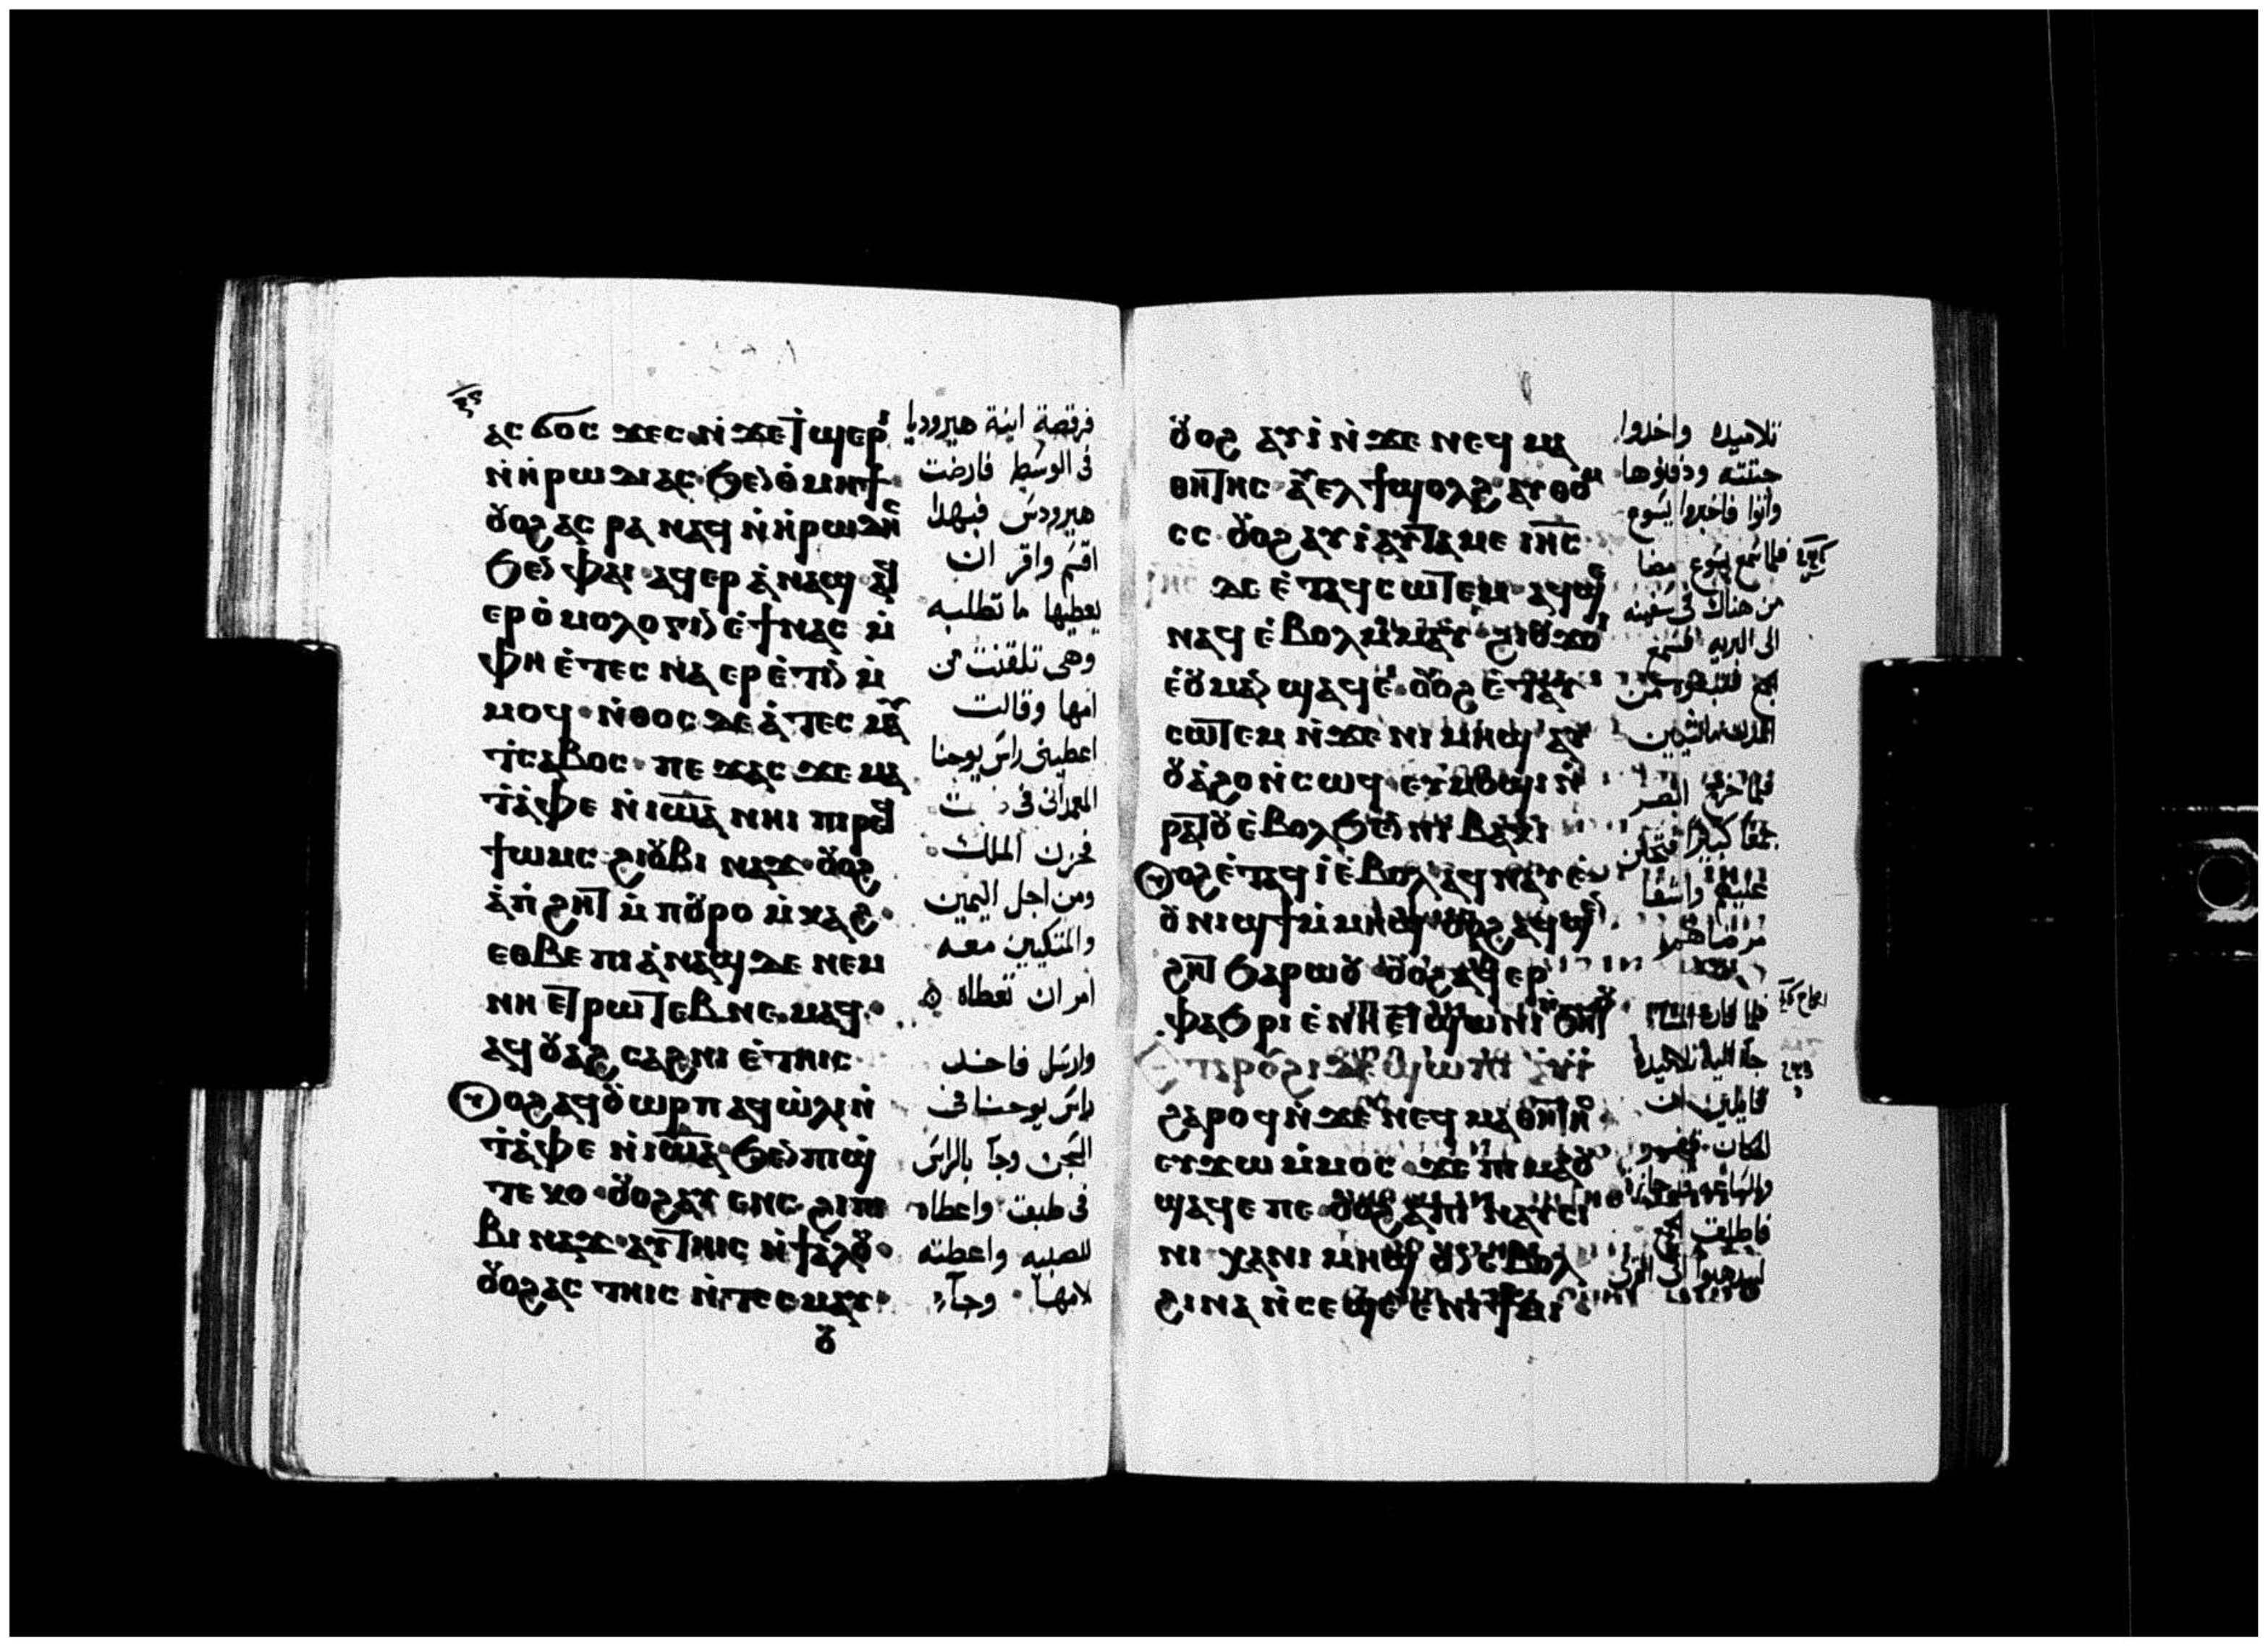 ⲁⲥϭⲟⲥϫⲉⲥ ⲛ̇ϫⲉⲧϣⲉⲣⲓ
ⲛ̇ⲏ̇ⲣⲱⲇⲓⲁⲥ ϧⲉⲛⲑⲙⲏϯ
ⲟⲩⲟϩ ⲁⲥⲣⲁⲛⲁϥ ⲛ̇ⲏ̇ⲣⲱⲇⲏⲥ
ϧⲉⲛⲫⲁⲓ ⲁϥⲉⲣⲁ̇ⲛⲁϣ ⲁϥ
ⲉⲣⲟ̇ⲙⲟⲗⲟⲅⲓⲛ ⲉ̇ϯⲛⲁⲥ ⲙ̇
ⲫⲏ ⲉ̇ⲧⲉⲥⲛⲁⲉⲣⲉ̇ⲧⲓⲛ ⲙ̇
ⲙⲟϥ ⲛ̇ⲑⲟⲥ ⲇⲉ ⲁ̇ⲧⲉⲥⲙⲁⲩ
ⲧⲥⲁⲃⲟⲥ ⲡⲉϫⲁⲥ ϫⲉ ⲙⲁ
ⲧⲁ̇ⲫⲉ ⲛ̇ⲓⲱⲁ ⲛⲏⲓ ⲡⲓⲣⲉϥ
ϯⲱⲙⲥ ϩⲓⲟⲩⲃⲓⲛⲁϫ ⲟⲩⲟϩ
ⲁ̇ⲡ̇ϩⲏⲧ ⲙ̇ⲡⲟⲩⲣⲟ ⲙ̇ⲕⲁϩ
ⲉⲑⲃⲉ ⲡⲓⲁ̇ⲛⲁϣ ⲇⲉ ⲛⲉⲙ
ⲛⲏⲉⲧⲣⲱⲧⲉⲃ ⲛⲉⲙⲁϥ
ⲁϥⲟⲩⲁϩⲥⲁϩⲛⲓ ⲉ̇ⲧⲏⲓⲥ
ⲟⲩⲟϩ ⲁϥⲟⲩⲱⲣⲡ ⲁϥⲱ̇ⲗⲓ ⲛ̇
ⲧⲁ̇ⲫⲉ ⲛ̇ⲓⲱⲁ ϧⲉⲛⲡⲓϣ
ⲧⲉⲕⲟ ⲟⲩⲟϩ ⲁⲩⲉⲛⲥ ϩⲓⲡⲓ
ⲃⲓⲛⲁϫ ⲁⲩⲧⲏⲓⲥ ⲛ̇ϯⲁ̇ⲗⲟⲩ
ⲟⲩⲟϩ ⲁⲥⲧⲏⲓⲥ ⲛ̇ⲧⲉⲥⲙⲁⲩ
ⲟⲩ
فرقصة ابنة هيروديا
فى الوسط فارضت
هيرودس فبهدا
اقسم واقر ان
يعطيها ما تطلبه
وهى تلقنت من
امها وقالت
اعطينى راس يوحنا
المعمدانى فى
فحزن الملك
ومن اجل اليمين
والمتكيين معه
امر ان تعطاه
وارسل فاخد
راس يوحنا فى
السجن وجآ بالراس
فى طبق واعطاه
للصبيه واعطته
لامها وجآء
ⲟⲩⲟϩ ⲁⲩⲓ̇ ⲛ̇ϫⲉ ⲛⲉϥⲙⲁ
ⲑⲏⲧⲏⲥ ⲁⲩⲉⲗ ϯϣⲟⲗϩ ⲁⲩⲑⲟⲙ
ⲥⲥ ⲟⲩⲟϩ ⲁⲩⲓ̇ ⲁⲩⲧⲁⲙⲉ ⲓⲏⲥ
ⲇⲉ ⲉ̇ⲧⲁϥⲥⲱⲧⲉⲙ ⲁϥϣⲉ
ⲛⲁϥ ⲉ̇ⲃⲟⲗ ⲙ̇ⲙⲁⲩ ϩⲓⲟⲩϫⲟⲓ
ⲉ̇ⲟⲩⲙⲁ ⲛ̇ϣⲁϥⲉ ⲟⲩⲟϩ ⲉ̇ⲧⲁⲩ
ⲥⲱⲧⲉⲙ ⲛ̇ϫⲉ ⲛⲓⲙⲏϣ ⲁⲩ
ⲟⲩⲁϩⲟⲩ ⲛ̇ⲥⲱϥ ⲉⲩⲙⲟϣⲓ ⲛ̇
ⲣⲁⲧⲟⲩ ⲉ̇ⲃⲟⲗϧⲉⲛ ⲛⲓⲃⲁⲕⲓ
ⲟⲩⲟϩ ⲉ̇ⲧⲁϥⲓ̇ ⲉ̇ⲃⲟⲗ ⲁϥⲛⲁⲩ ⲉ̇
ⲟⲩⲛⲓϣϯ ⲙ̇ⲙⲏϣ ⲟⲩⲟϩ ⲁϥϣⲉⲛ
ϩⲏⲧ ϧⲁⲣⲱⲟⲩ ⲟⲩⲟϩ ⲁϥⲉⲣ
ⲫⲁϧⲣⲓ ⲉ̇ⲛⲏⲉⲧϣⲱⲛⲓ ⲛ̇ϧⲏⲧⲟⲩ
ⲉⲧⲁ ⲣⲟⲩϩⲓ ⲇⲉ ϣⲱⲡⲓ ⲁⲩⲓ̇
ϩⲁⲣⲟϥ ⲛ̇ϫⲉ ⲛⲉϥⲙⲁⲑⲏⲧⲏⲥ
ⲉⲩϫⲱ ⲙ̇ⲙⲟⲥ ϫⲉ ⲡⲓⲙⲁ ⲟⲩ
ϣⲁϥⲉ ⲡⲉ ⲟⲩⲟϩ
ⲛⲓ ⲭⲁ ⲛⲓⲙⲏϣ ⲟⲩⲛ ⲉ̇ⲃⲟⲗ
ϩⲓⲛⲁ ⲛ̇ⲥⲉϣⲉ ⲉ̇ⲛⲓϯⲙⲓ
تلاميده واخدوا
جتته ودفنوها
واتوا فاخبروا يسوع
فلما سمع يسوع مضا
من هناك فى سفينه
الى البريه
من
المدن ماشيين
فلما خرج ابصر
جمعا كبيرا فتحنن
عليهم واشفا
مرضاهم
فلما كان المسا
جآ اليه تلاميده
قايلين ان
المكان
فاطلق الجمع
ليدهبوا الى القرى